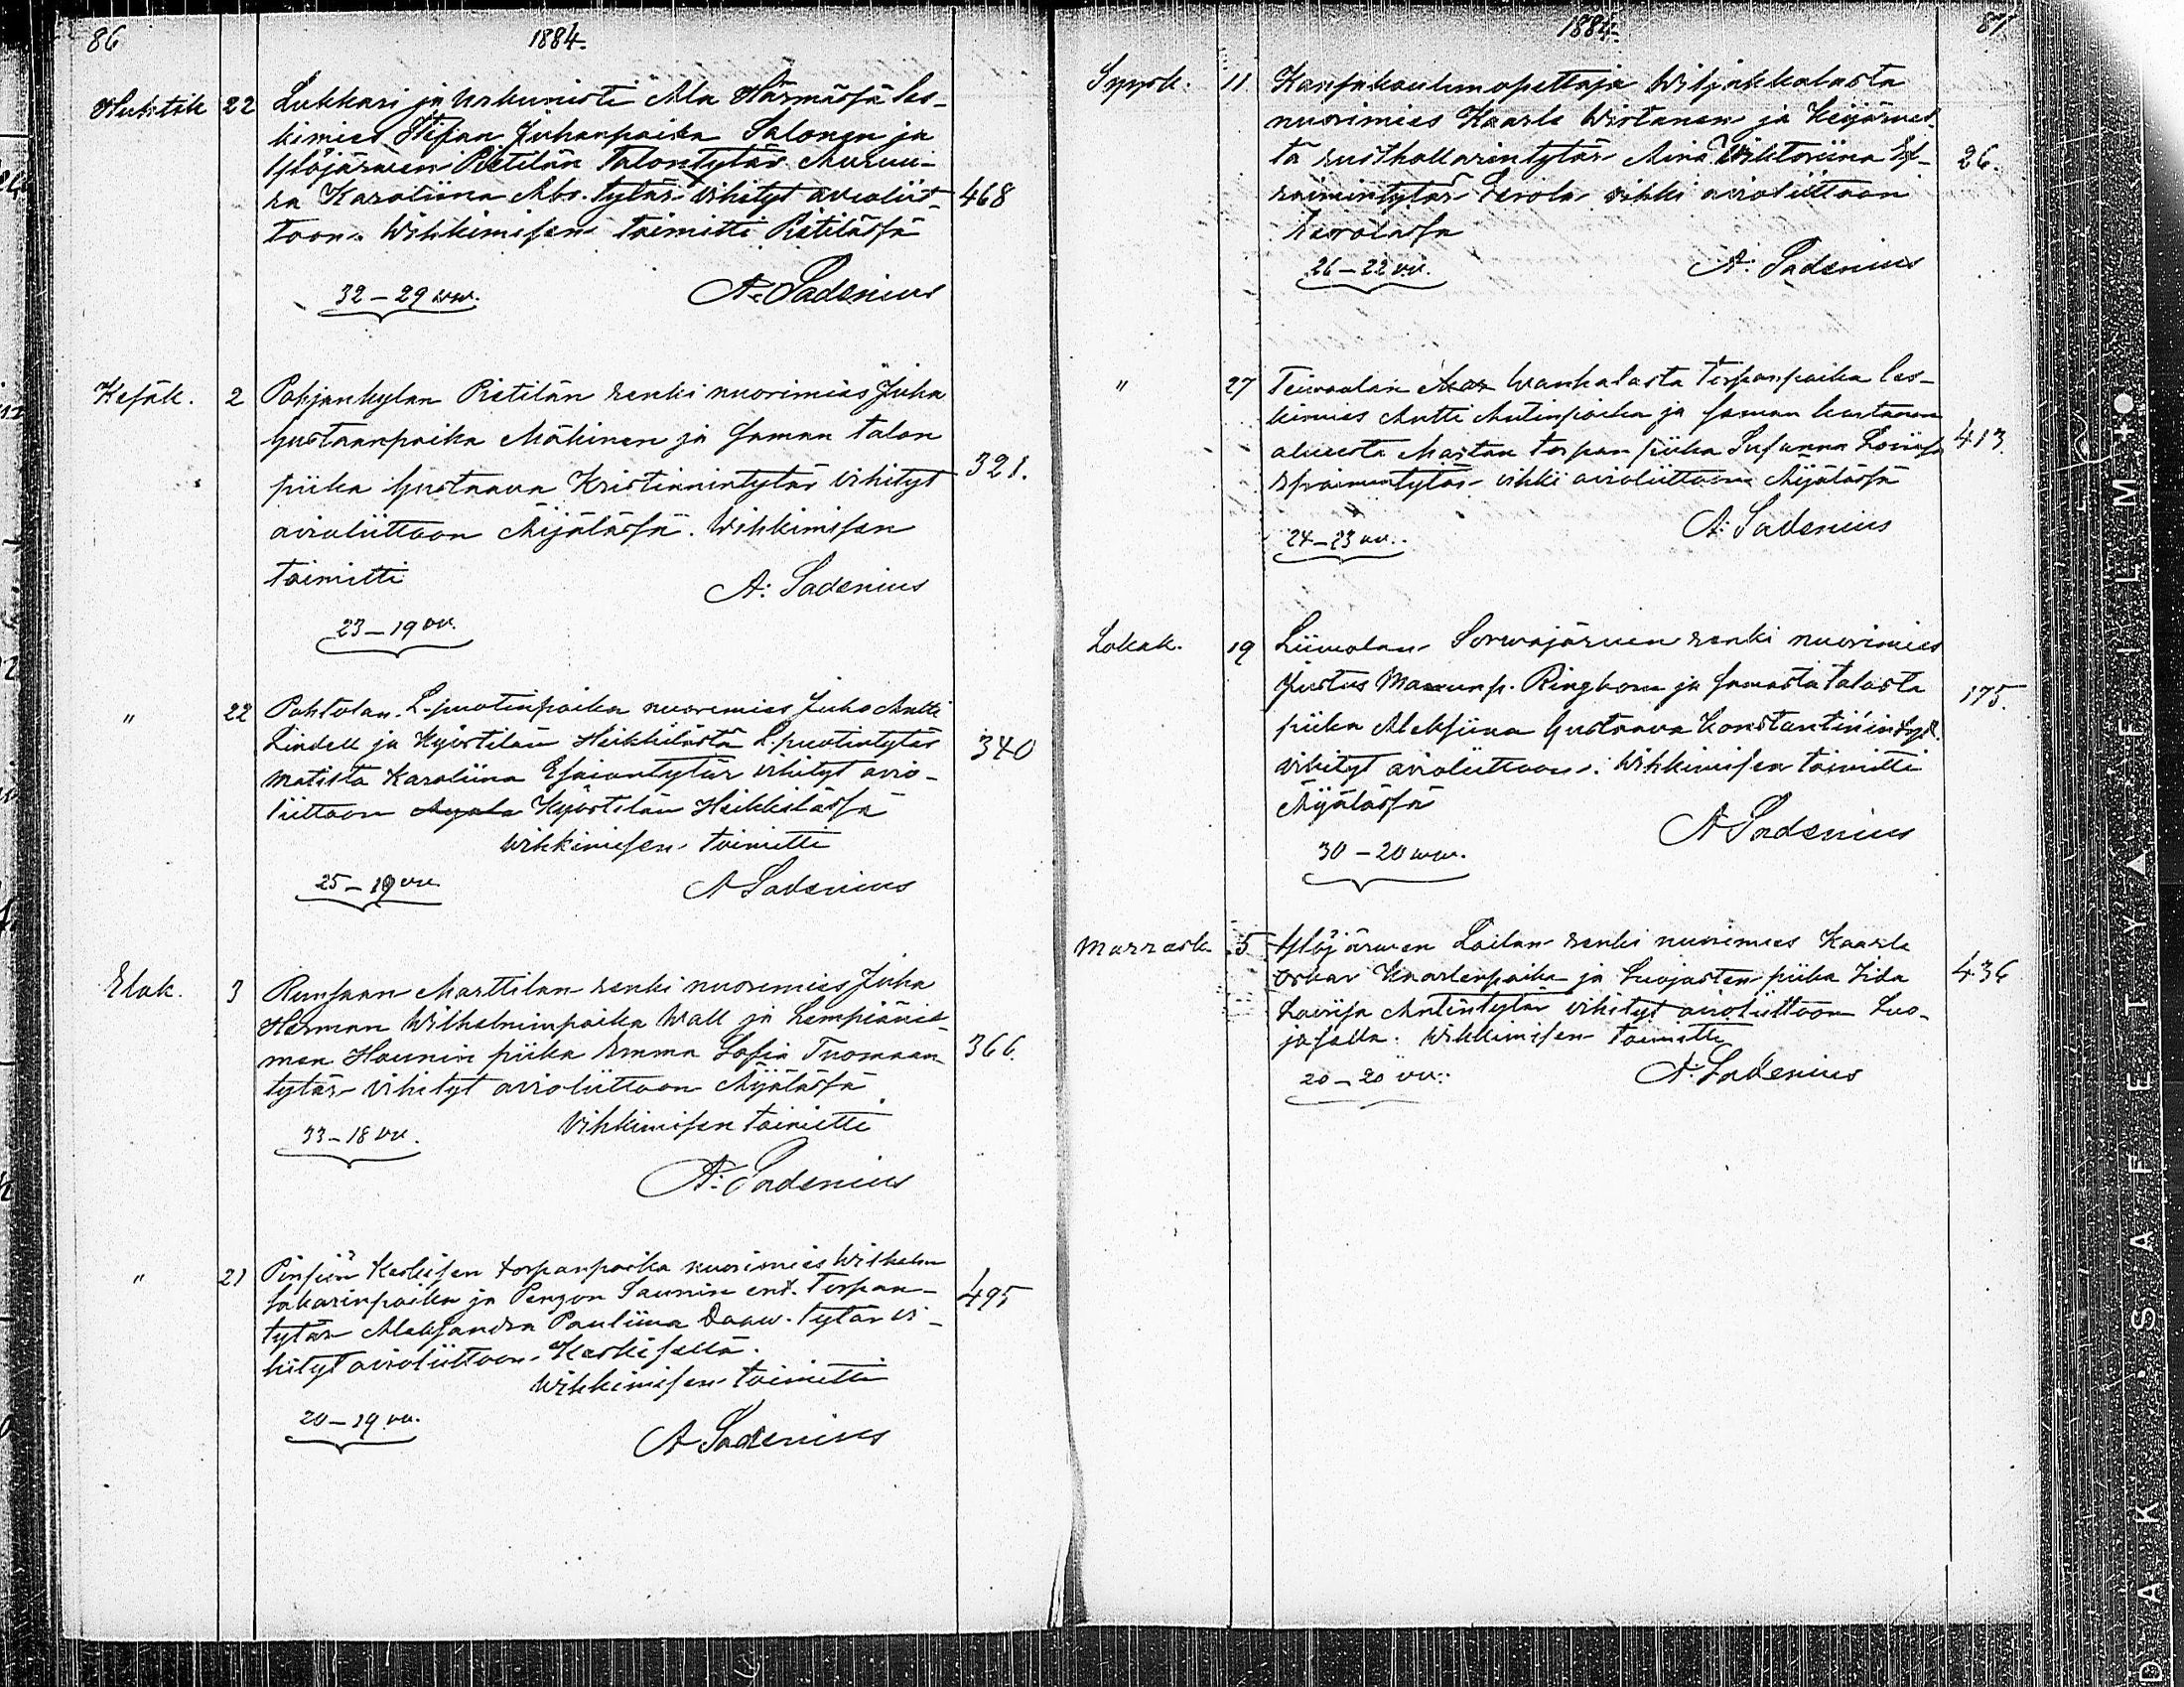 86
1884.
Huhtik 22 Lukkari ja Urkunisti Ala Härmässä les-
kimies Stefan Juhanpoika Salonen ja
Ylöjärwen Pietilän Talontytär
ra Karoliina Abr. tytär vihityt avioliit- 468
toon. Wihkimisen toimitti Pietilässä
32-29 vv. A. Sadenius
Kesäk. 2 Pohjankylän Pietilän renki nuorimies Juha
Gustaanpoika Mäkinen ja saman talon
piika Gustaava Kristianintytär vihityt 321.
avioliittoon Äijälässä. Wihkimisen
toimitti A: Sadenius
23-19 vv.
" 22 Pohtolan L-puotinpoika nuoremies Juho Antti
Lindell ja Kyöstilän Heikkilästä L.puotintytär 340
Matilta Karoliina Esaiantytär vihityt avio-
liittoon Kyöstilän Heikkilässä
wihkimisen toimitti
25-19 vv. A Sadenius
Elok. 3 Runsaan Marttilan renki nuoremies Juha
Herman Wilhelminpoika Wall ja Lempiänie-
men Haunin piika Emma Sofia Tuomaan 366.
tytär vihityt avioliittoon Äijälässä
Vihkimisen toimitti
33-18 vv.
A. Sadenius
" 21 Pinsiön Keskisen torpanpoika nuorimies Wilhelm
Sakarinpoika ja Pengon Saunin ent. Torpan- 495
tytär Aleksandra Pauliina Daaw. tytär vi-
hityt avioliittoon Keskisellä.
Wihkimisen toimitti
20-19 vv.
A Sadenius
1884.
87
Syysk. 11 Kansakoulunopettaja Wiljakkalasta
nuorimies Kaarle Wirtanen ja Keijärwes-
tä rusthollarintytär Aina Wihtoriina Ef- 26.
raimintytär Eerola vihki avioliittoon
Eerolassa
26-22 vv. A: Sadenius
" 27 Teiwaalan Wanhalasta Torpanpoika les-
kimies Antti Antinpoika ja saman kartanon
alueesta Martan torpan piika Susanna Loviisa 413.
Efraimintytär vihki avioliittoon Äijälässä
24-23 vv. A: Sadenius
Lokak. 19 Liimolan Sorwajärwen renki nuorimies
Justus p. Ringbom ja samasta talosta 175.
piika Aleksiina Gustaava Konstantiinintyt.
vihityt avioliittoon. Wihkimisen toimitti
Äijälässä
A Sadenius
30-20 vv.
Marrask. 5 Ylöjärwen Loilan renki nuorimies Kaarle
Oskar Kaarlenpoika ja Luojasten piika Iida 436
Lovisa Antintytär vihityt avioliittoon Luo-
jasilla. Wihkimisen toimitti
20-20 vv. A. Sadenius
DAK · SAFETY FILM